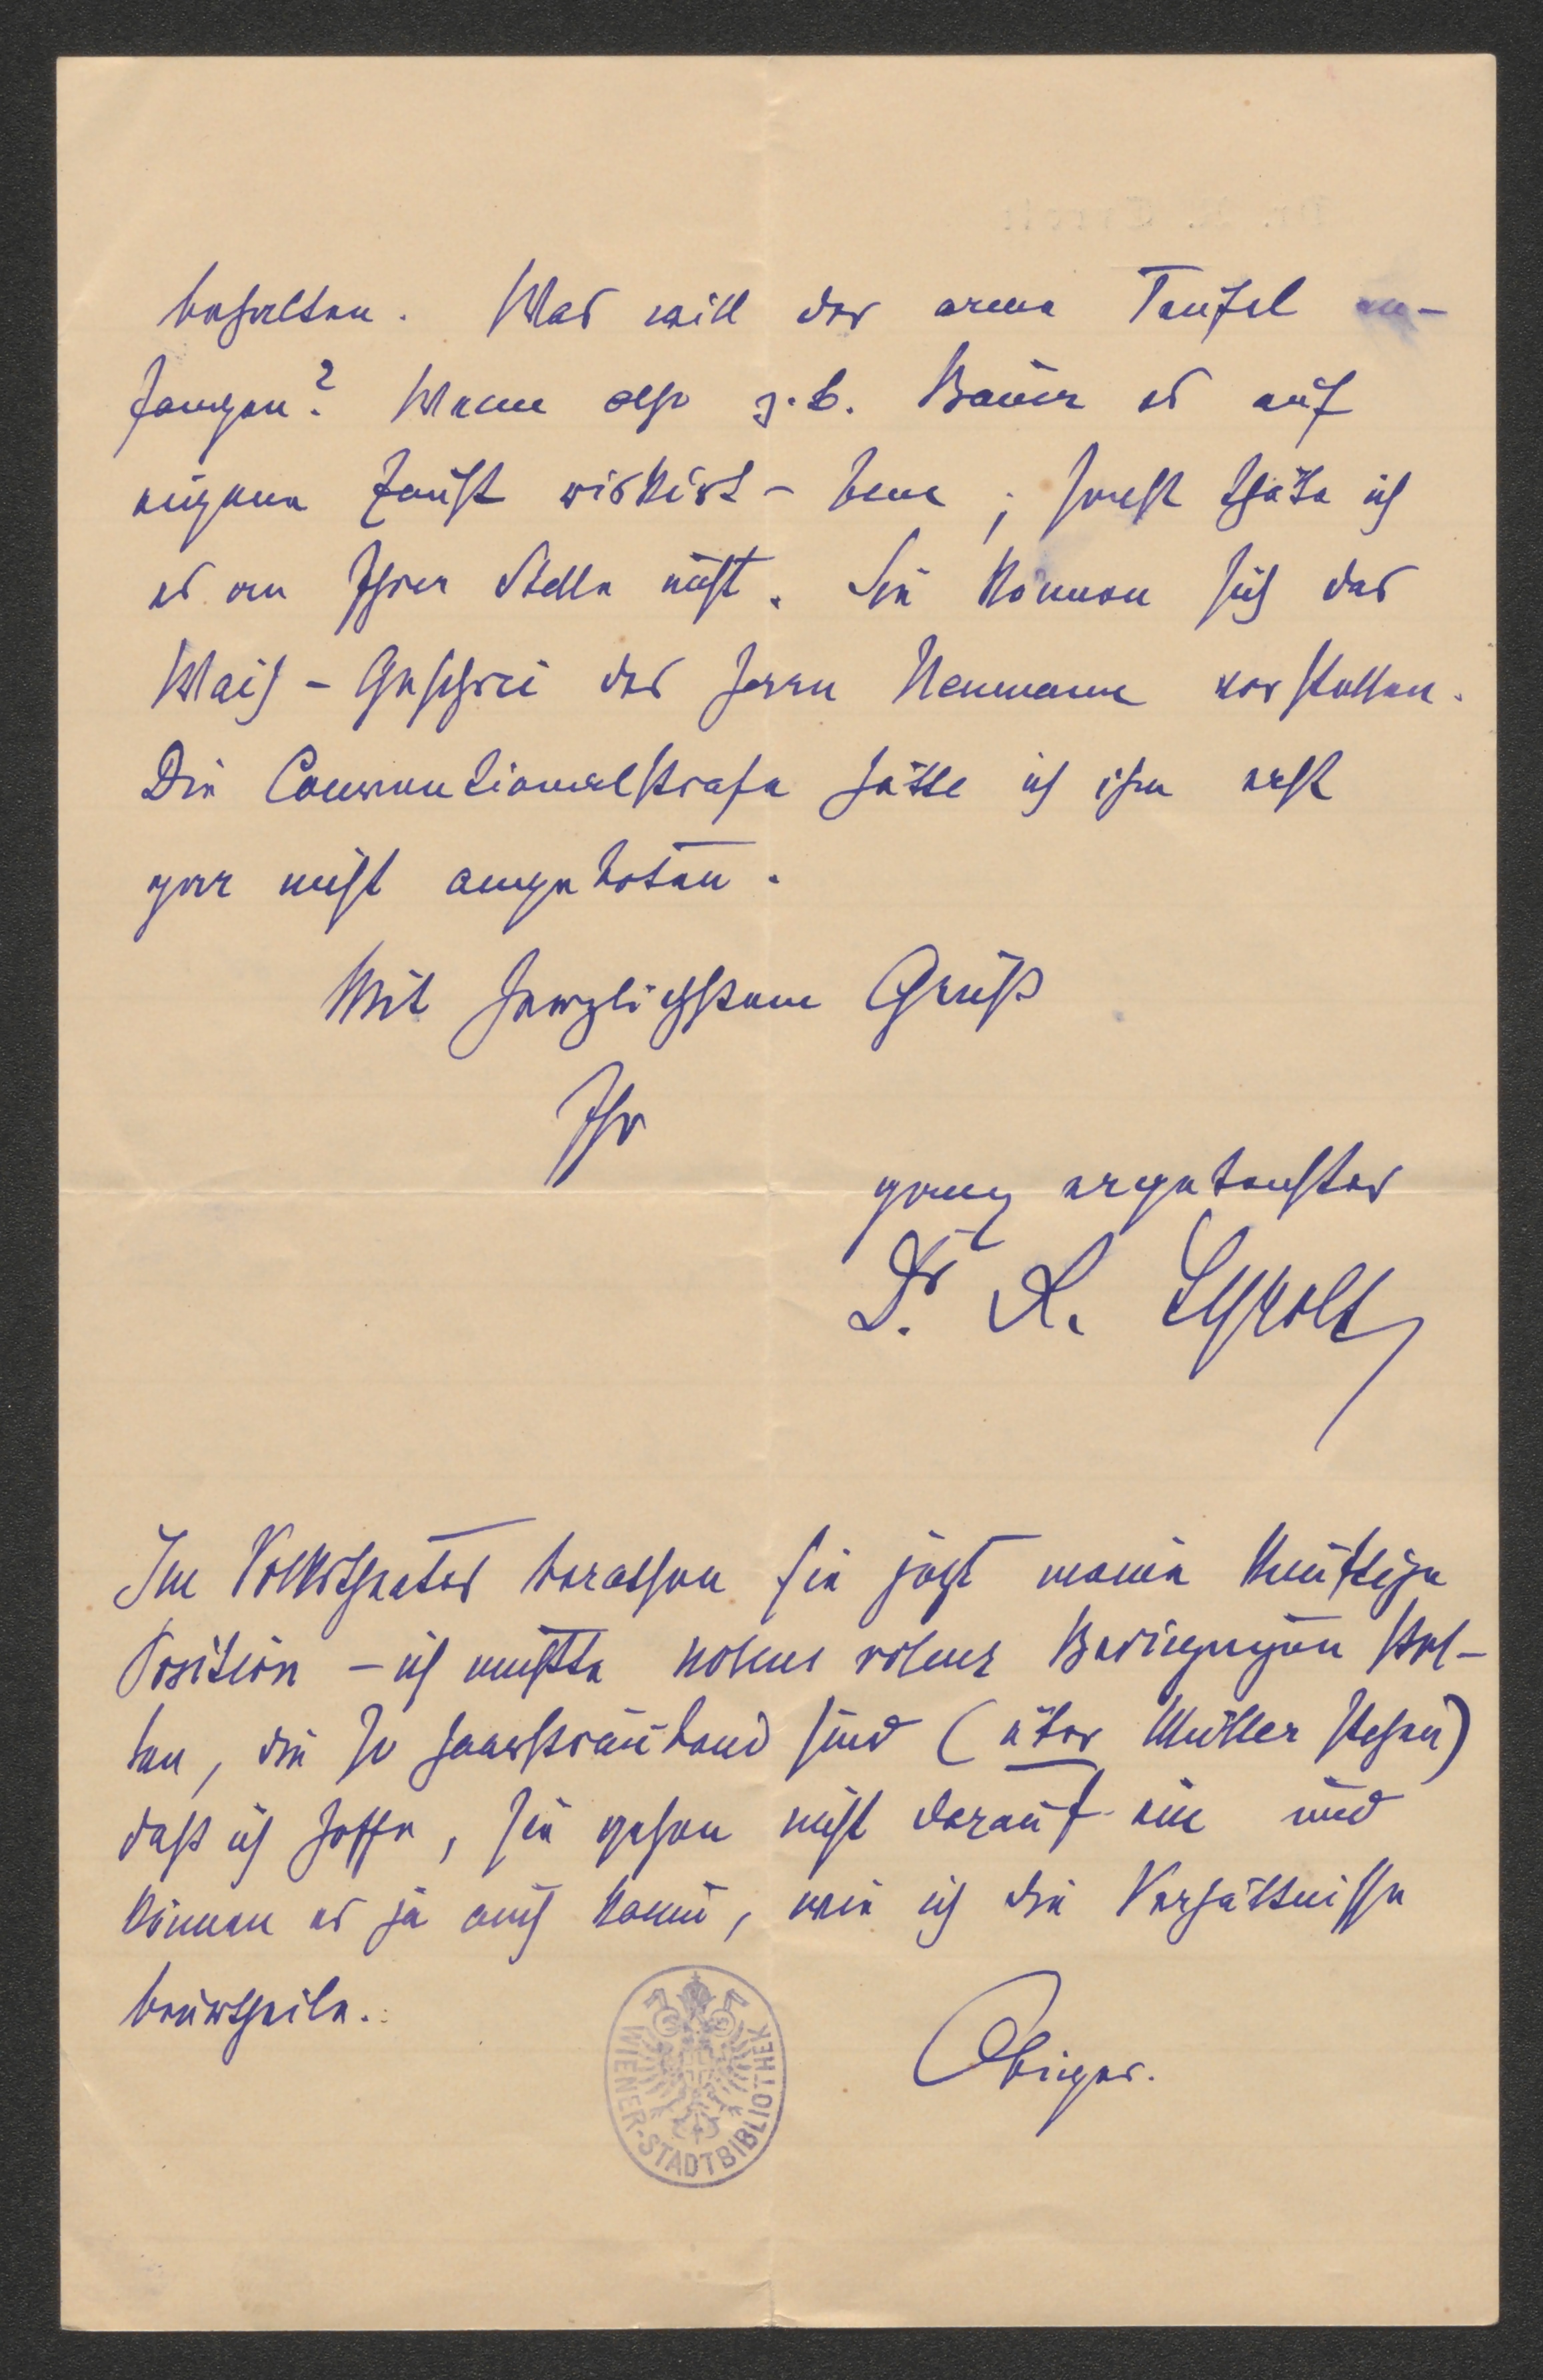 behalten. Was will der arme Teufel an-
fangen? Wenn also z.B. Bauer es auf
eigene Faust riskirt – bene; sonst thäte ich
es an Ihrer Stelle nicht. Sie können sich das
Waih-Geschrei des Herrn Neumann vorstellen.
Die Conventionalstrafe hätte ich ihm erst
gar nicht angeboten.
Mit herzlichstem Gruß
Ihr
ganz ergebenster
Dr. R. Tyrolt
Im Volkstheater berathen sie jetzt meine künftige
Position – ich mußte nolens volens Bedingungen stel-
len, die so haarsträubend sind (über Müller stehen)
daß ich hoffe, sie gehen nicht darauf ein und
können es ja auch kaum, wie ich die Verhältnisse
beurtheile.
Obiger.
WIENER-STADTBIBLIOTHEK